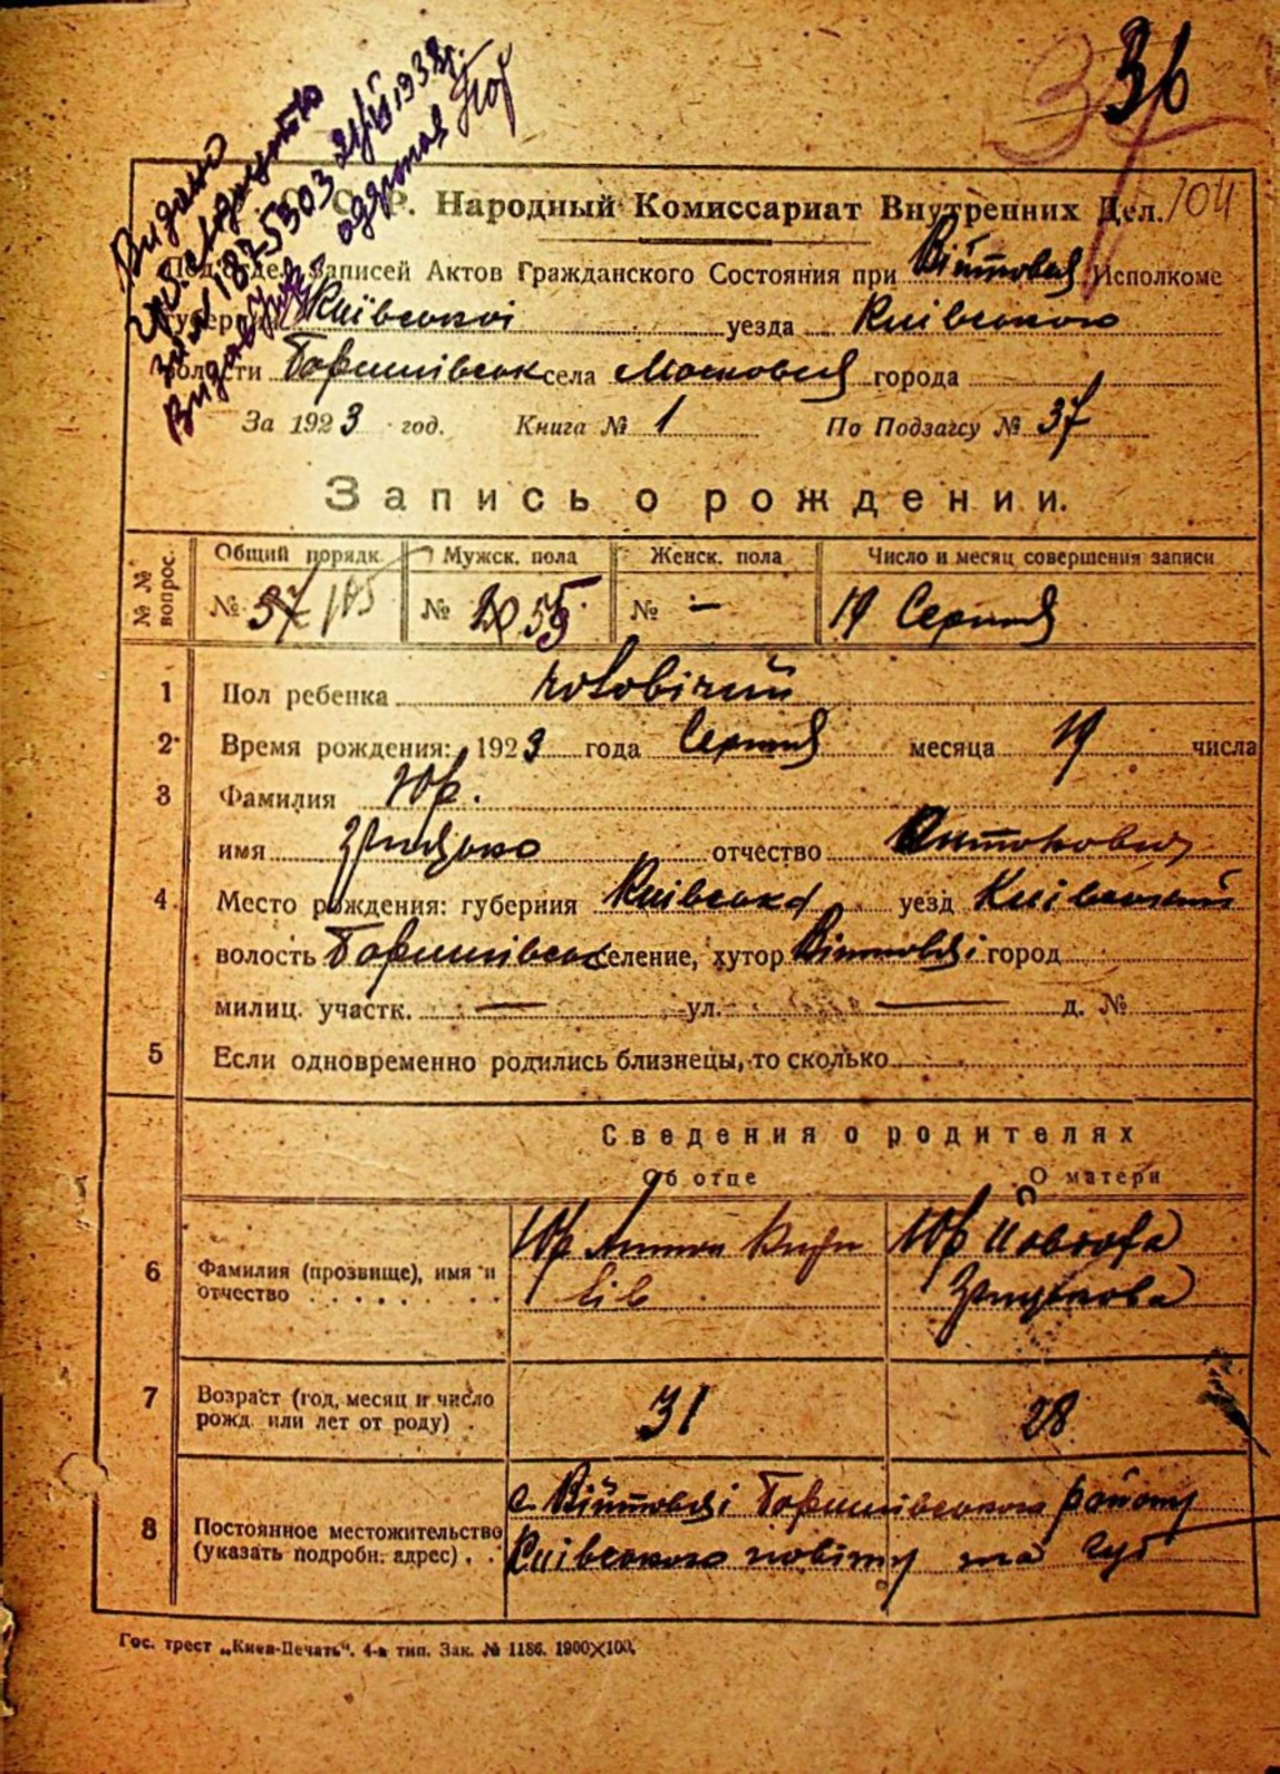 36
104
Видано
С. Р. Народный Комиссариат Внутренних Дел.
Подотдел Записей Актов Гражданского Состояния при Війтовця Исполкоме
губернии Київської уезда Київського
волости Баришівськ села города
За 1923 год. Книга № 1 По Подзагсу № 37
Запись о рождении.
№ № вопрос. Общий порядк. Мужск. пола Женск. пола Число и месяц совершения записи
№ 37 105 № 20 55 № — 19 Серпня
1 Пол ребенка чоловічий
2 Время рождения: 1923 года Серпня месяца 19 числа
3 Фамилия Юр.
имя Грицько отчество Антонович
4 Место рождения: губерния Київська уезд Київський
волость Баришівськ селение, хутор Війтовці город
милиц. участк. — ул. — д. №
5 Если одновременно родились близнецы, то сколько
Сведения о родителях
Об отце О матери
6 Фамилия (прозвище), имя и отчество Юр Антон Юр Грицькова
7 Возраст (год, месяц и число рожд. или лет от роду) 31 28
8 Постоянное местожительство (указать подробн. адрес) с. Війтовці Баришівського району
Київського повіту губ
Гос. трест „Киев-Печать“. 4-я тип. Зак. № 1186. 1900×100.